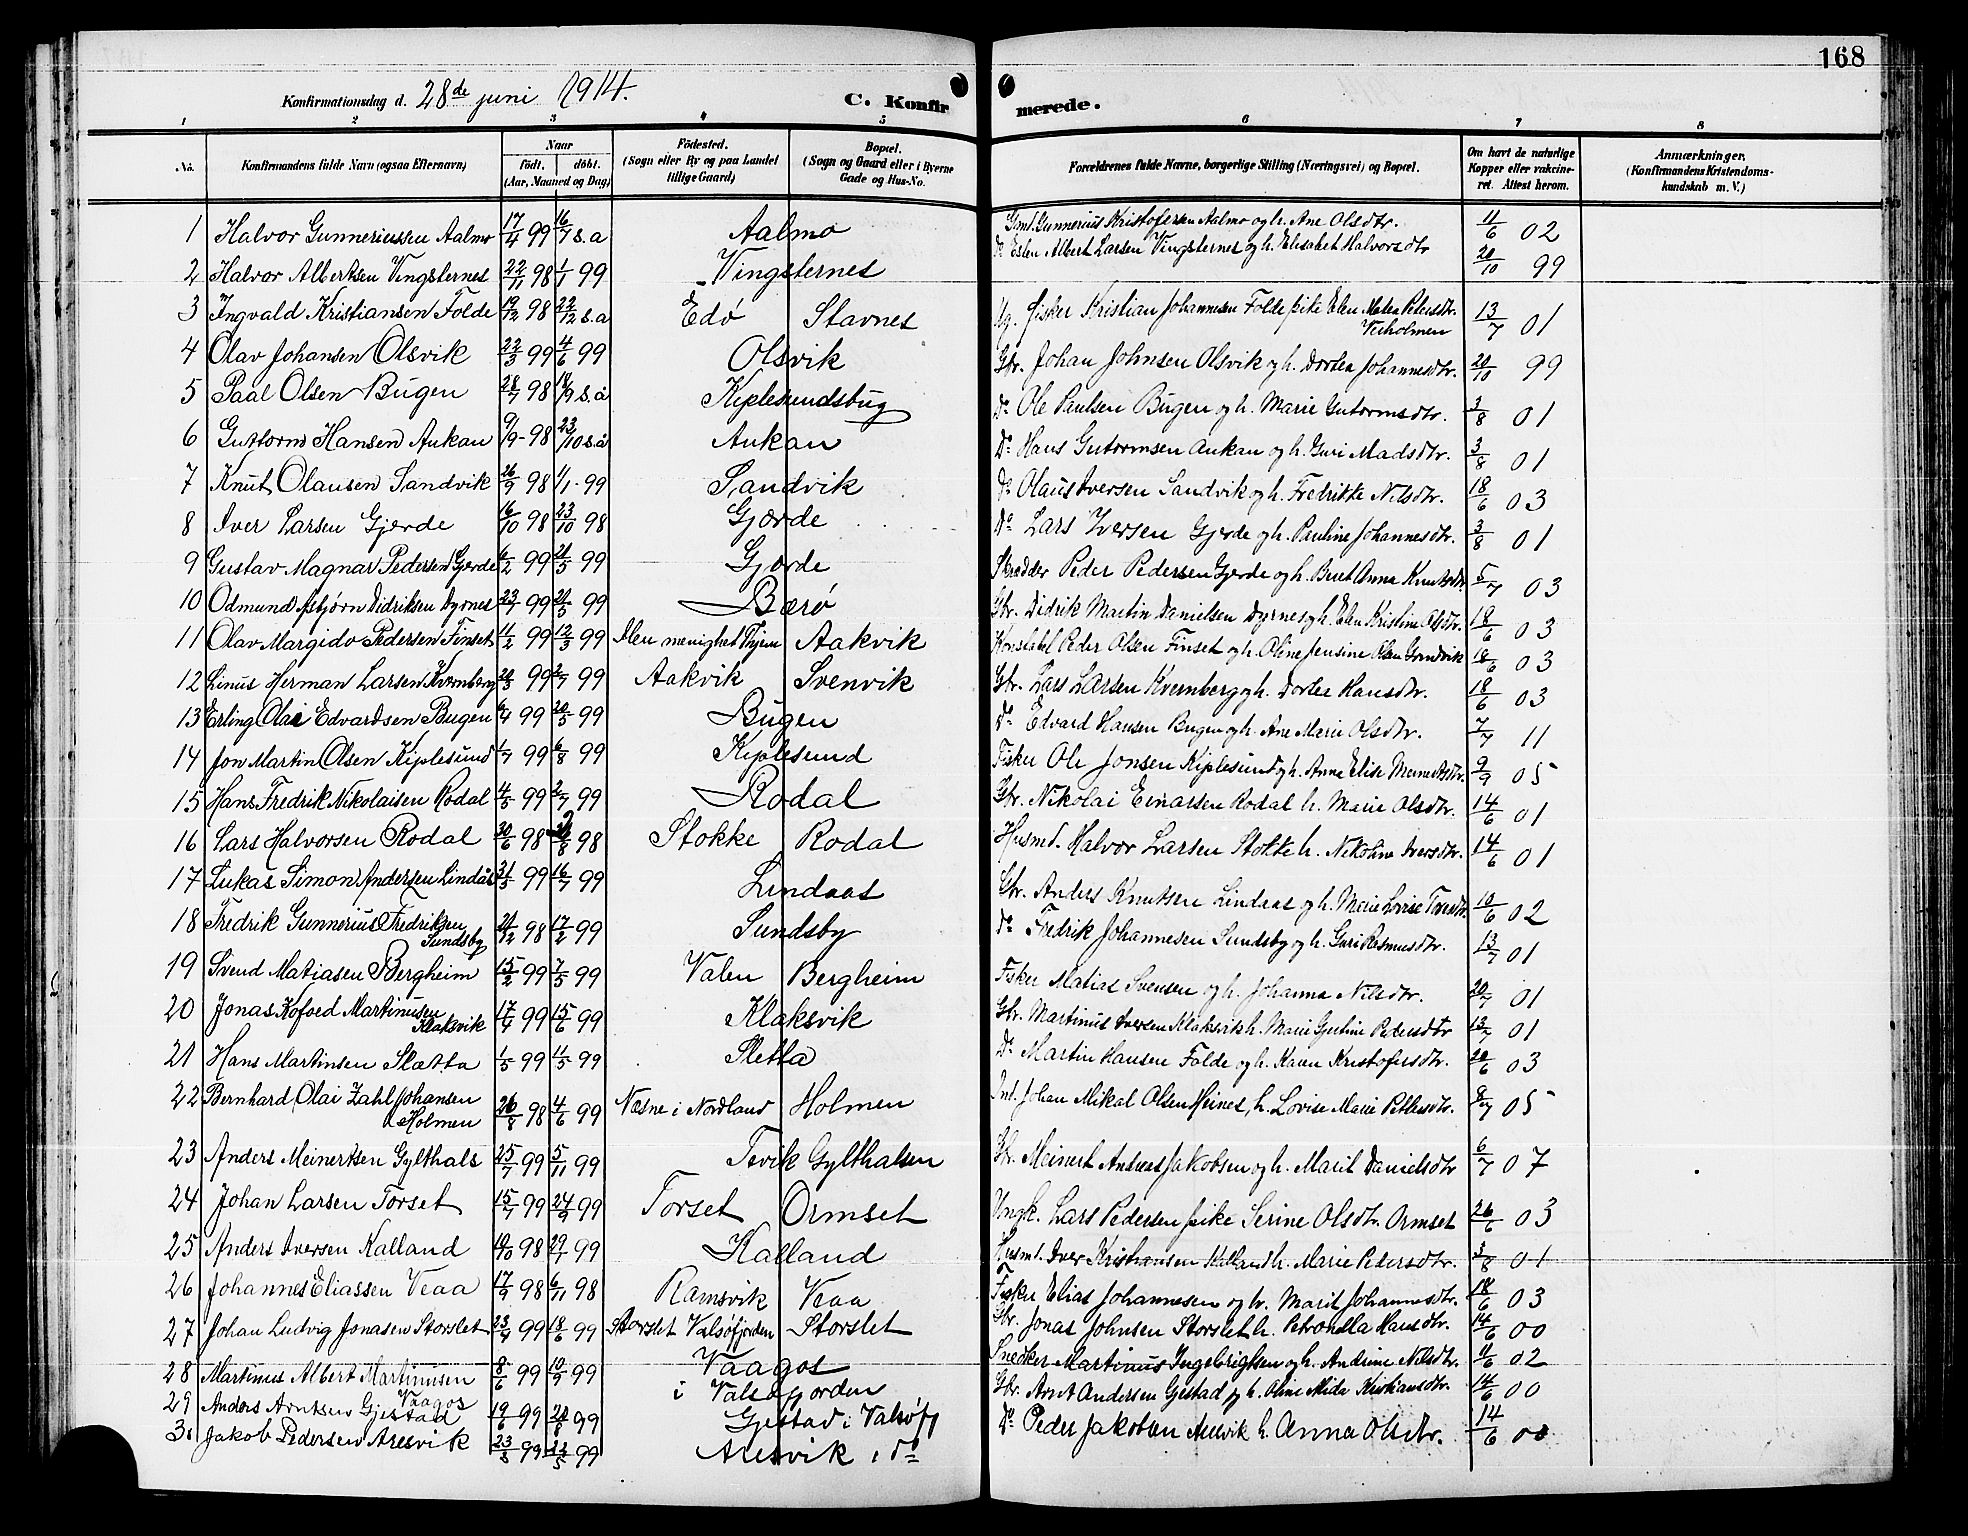 168
Konfirmationsdag d. 28de juni 1914. C. Konfirmerede.
1 2 3 4 5 6 7 8
No. Konfirmandens fulde Navn (ogsaa Efternavn) Naar født. døbt. (Aar, Maaned og Dag) Födested. (Sogn eller By og paa Landet tillige Gaard) Bopæl. (Sogn og Gaard eller i Byerne Gade og Hus-No. Forældrenes fulde Navne, borgerlige Stilling (Næringsvei) og Bopæl. Om havt de naturlige Kopper eller vakcineret. Attest herom. Anmærkninger. (Konfirmandens Kristendomskundskab m. V.)
1 Halvor Gunneriussen Aalmo 17/4 99 16/7 s.a Aalmo Gmd. Gunnerius Kristofersen Aalmo og h. Ane Olsdtr. 11/6 02
2 Halvor Albertsen Vingsternes 22/11 98 1/1 99 Vingsternes Do Albert Larsen Vingsternes og h. Elisabet Halvorsdtr 20/10 99
3 Ingvald Kristiansen Folde 19/12 98 22/12 s.a Edø Stavnes Ug. fisker Kristian Johannesen Folde pike Elen Malea Petersdtr. Veiholmen 13/7 01
4 Olav Johansen Olsvik 22/3 99 4/6 99 Olsvik Gbr. Johan Johnsen Olsvik og h. Dortea Johannesdtr. 20/10 99
5 Paal Olsen Bugen 28/7 98 18/9 s.å Kiplesundsbug Do Ole Paulsen Bugen og h. Marie Gutormsdtr. 3/8 01
6 Guttorm Hansen Aukan 9/9 98 23/10 s.å Aukan Do Hans Gutormsen Aukan og h. Guri Madsdtr. 3/8 01
7 Knut Olausen Sandvik 26/9 98 1/1 99 Sandvik Do Olaus Iversen Sandvik og h. Fredrikke Nilsdtr. 18/6 03
8 Iver Larsen Gjerde 16/10 98 23/10 98 Gjærde Do Lars Iversen Gjerde og h. Pauline Johannesdtr. 3/8 01
9 Gustav Magnar Pedersen Gjerde 6/2 99 21/5 99 Gjærde Skrædder Peder Pedersen Gjerde og h. Beret Anna Knutsdtr 5/7 03
10 Odmund Asbjørn Didriksen Dyrnes 23/1 99 21/5 99 Bærø Gbr. Didrik Martin Danielsen Dyrnes og h. Elen Kristine Olsdtr 18/6 03
11 Olav Margido Pedersen Finset 11/2 99 12/3 99 Ilen menighed Thjem Aakvik Konstabl Peder Olsen Finset og h. Oline Jensine Olsen Grundvik 18/6 03
12 Linus Herman Larsen Kvernberg 28/3 99 2/7 99 Aakvik Svenvik Gbr. Lars Larsen Kvernberg og h. Dortea Hansdtr. 18/6 03
13 Erling Olai Edvardsen Bugen 6/4 99 20/5 99 Bugen Do Edvard Hansen Bugen og h. Ane Marie Olsdtr. 7/7 11
14 Jon Martin Olsen Kiplesund 1/7 99 6/8 99 Kiplesund Fisker Ole Jonsen Kiplesund og h. Anna Elise 9/7 05
15 Hans Fredrik Nikolaisen Rodal 4/5 99 2/7 99 Rodal Gbr. Nikolai Einarsen Rodal h. Marie Olsdtr. 14/6 01
16 Lars Halvorsen Rodal 30/6 98 98 Stokke Rodal Husmd. Halvor Larsen Stokke h. Nikoline Iversdtr. 14/6 01
17 Lukas Simon Andersen Lindås 21/5 99 16/7 99 Lindaas Gbr. Anders Knutsen Lindaas og h. Marie Lovise 10/6 02
18 Fredrik Gunnerius Fredriksen Sundsby 21/12 98 12/2 99 Sundsby Do Fredrik Johannesen Sundsby og h. Guri Rasmusdtr. 13/7 01
19 Svend Matiasen Bergheim 15/2 99 7/5 99 Valen Bergheim Fisker Matias Svensen og h. Johanna Nilsdtr. 20/7 01
20 Jonas Kofoed Martinusen Klaksvik 17/4 99 15/6 99 Klaksvik Gbr. Martinus Iversen Klaksvik h. Marie Gurine Pedersdtr 13/7 01
21 Hans Martinsen Slætta 1/5 99 11/5 99 Sletta Do Martin Hansen Folde og h. Karen Kristofersdtr. 20/6 03
22 Bernhard Olai Zahl Johansen Holmen 26/8 98 4/6 99 Næsne i Nordland Holmen Johan Mikal Olsen Heines, h. Lovise Marie Pettersdtr. 8/7 05
23 Anders Meinertsen Gylthals 25/7 99 5/11 99 Tevik Gylthalsen Gbr. Meinert Andreas Jakobsen og h. Marit Danielsdtr 6/7 07
24 Johan Larsen Torset 15/7 99 24/9 99 Torset Ormset Ungk. Lars Pedersen pike Serine Olsdtr. Ormset 26/6 03
25 Anders Iversen Kalland 10/10 98 29/1 99 Kalland Husmd. Iver Kristiansen Kalland h. Marie Pedersdtr. 3/8 01
26 Johannes Eliassen Veaa 17/9 98 6/11 98 Ramsvik Veaa Fisker Elias Johannesen og h. Marit Johannesdtr. 18/6 03
27 Johan Ludvig Jonasen Storslet 23/4 99 18/6 99 Storslet Valsøfjorden Storslet Gbr. Jonas Johnsen Storslet h. Petronella Hansdtr. 14/6 00
28 Martinus Albert Martinusen Vaagos 8/6 99 10/9 99 Vaagos i Valsøfjorden Snedker Martinus Ingebrigtsen og h. Andrine Nilsdtr. 11/6 02
29 Anders Arntsen Gjestad 19/6 99 20/8 99 Gjestad i Valsøfj Gbr. Arnt Andersen Gjestad og h. Oline Mida Kristiansdtr. 14/6 00
30 Jakob Pedersen Aresvik 23/3 99 22/5 99 Aresvik i do Do Peder Jakobsen Aresvik h. Anna Olsdtr. 14/6 00